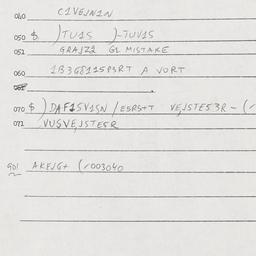 040 C1VEJN1N
050 $ )TU1S )-TUV1S
051 GRAJZ1 G1 MISTAKE
060 1B3G8115P3RT A VORT
070 $ ) DAF1SV1SN / ESRS+T VEJSTE53R - (/
071 /VUSVEJSTE5R
901 AKFJG+ (/003040